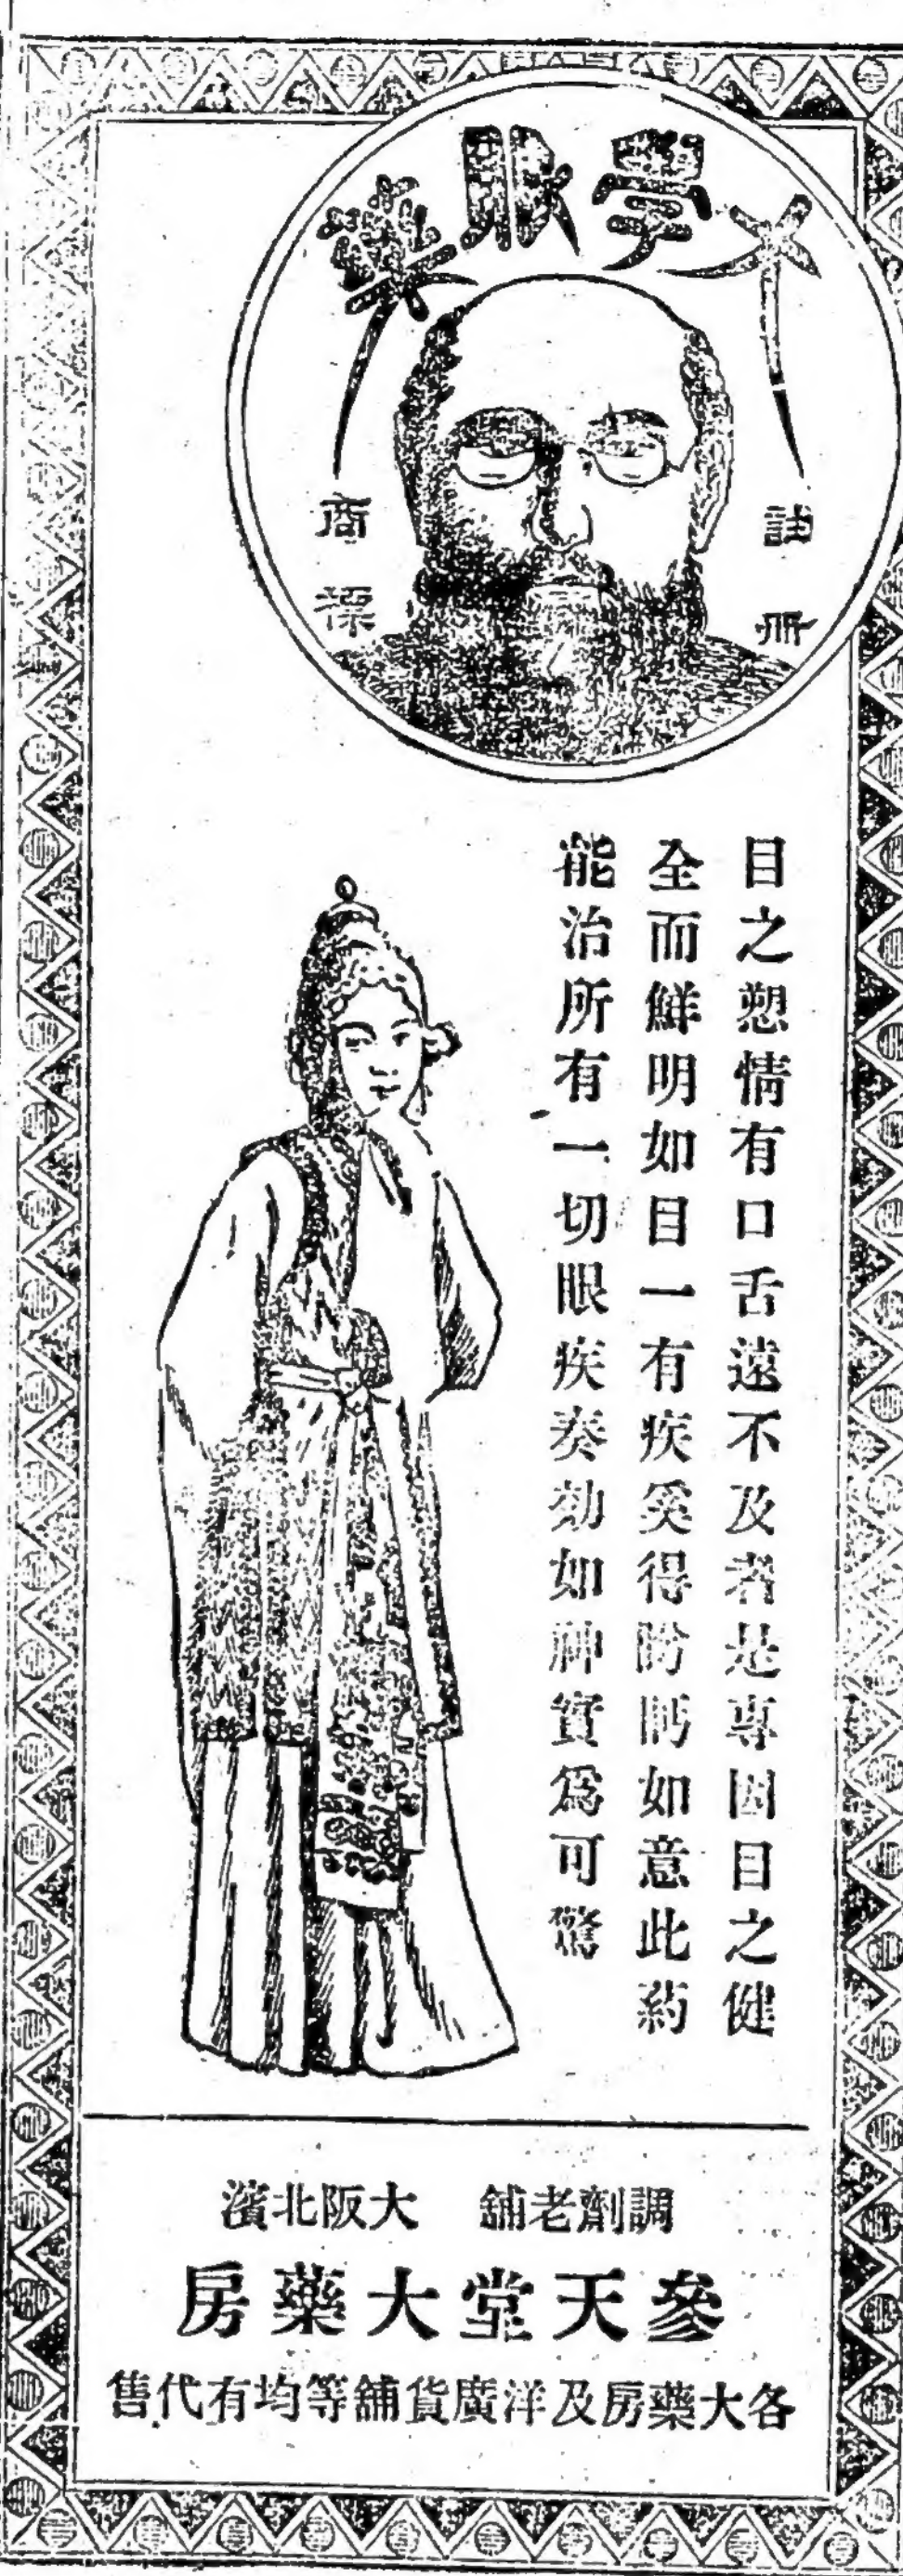 大學眼藥
註冊
商標
目之愬情有口舌遠不及者是專因目之健
全而鮮明如目一有疾奚得盻眄如意此葯
能治所有一切眼疾奏効如神實爲可驚
調劑老舖 大阪北濱
參天堂大藥房
各大藥房及洋廣貨舖等均有代售